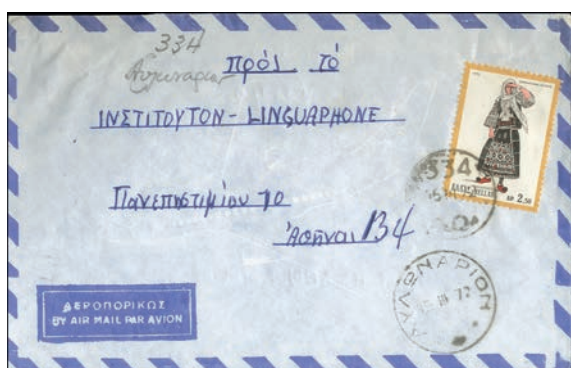 334
πρός τό
ΙΝΣΤΙΤΟΥΤΟΝ - LINGUAPHONE
Πανεπιστιμίου 10
Ἀθῆναι 134
334
ΕΛΛΑΣ HELLAS ΔΡ 2,50
ΑΥΛΩΝΑΡΙΟΝ
72
ΑΕΡΟΠΟΡΙΚΩΣ
BY AIR MAIL PAR AVION